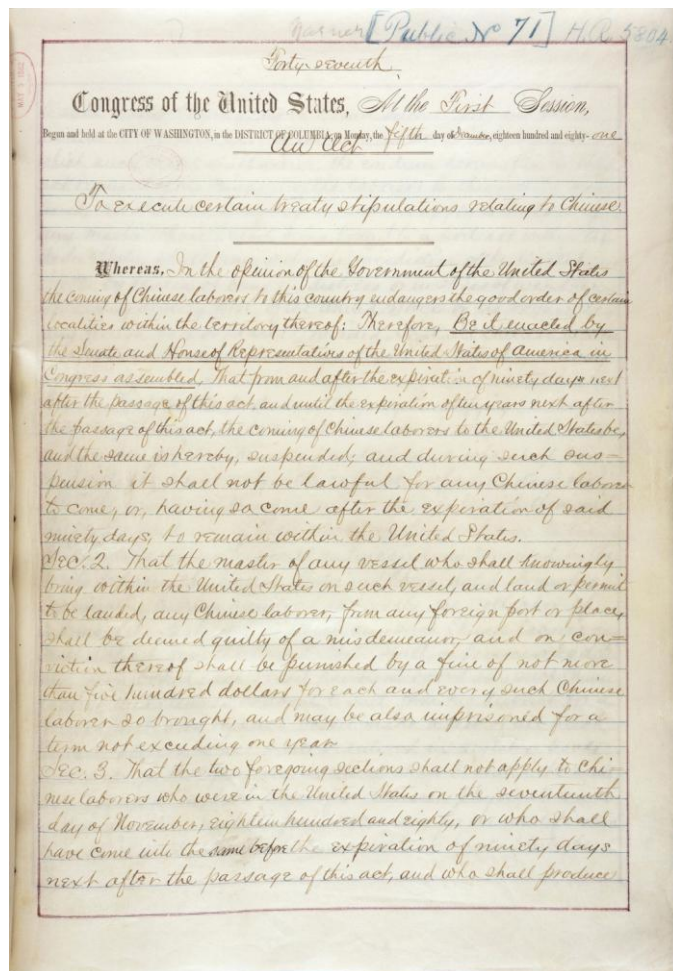 [Public No 71] H.R. 5804
Forty seventh
Congress of the United States, At the First Session,
Begun and held at the CITY OF WASHINGTON, in the DISTRICT OF COLUMBIA, on Monday, the fifth day of December, eighteen hundred and eighty-one
An Act
To execute certain treaty stipulations relating to Chinese.
Whereas, In the opinion of the Government of the United States
the coming of Chinese laborers to this country endangers the good order of certain
localities within the territory thereof: Therefore, Be it enacted by
the Senate and House of Representatives of the United States of America in
Congress assembled, That from and after the expiration of ninety days next
after the passage of this act, and until the expiration of ten years next after
the passage of this act, the coming of Chinese laborers to the United States be,
and the same is hereby, suspended; and during such sus=
pension it shall not be lawful for any Chinese laborer
to come, or, having so come after the expiration of said
ninety days, to remain within the United States.
SEC. 2. That the master of any vessel who shall knowingly
bring within the United States on such vessel, and land or permit
to be landed, any Chinese laborer, from any foreign port or place,
shall be deemed guilty of a misdemeanor, and on con=
viction thereof shall be punished by a fine of not more
than five hundred dollars for each and every such Chinese
laborer so brought, and may be also imprisoned for a
term not exceeding one year.
SEC. 3. That the two foregoing sections shall not apply to Chi-
nese laborers who were in the United States on the seventeenth
day of November, eighteen hundred and eighty, or who shall
have come into the same before the expiration of ninety days
next after the passage of this act, and who shall produce